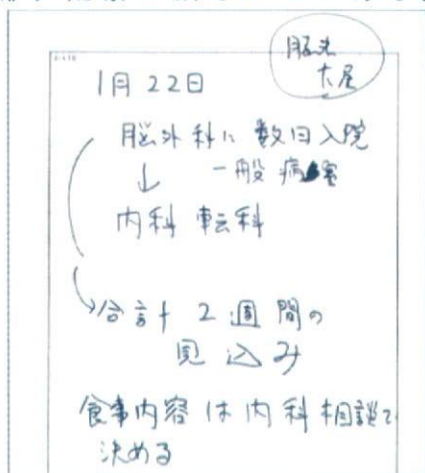 1月22日
脳外科に数日入院
↓ 一般病室
内科 転科
合計2週間の
見込み
食事内容は内科相談で
決める